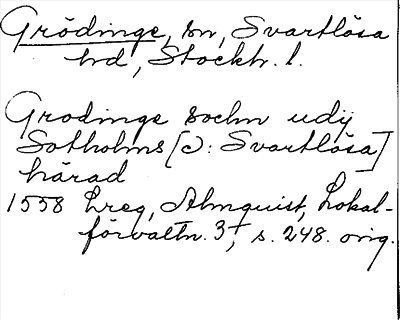 Grödinge, sn, Svartlösa
hd, Stockh. l.
Grodinge sochn udij
Sotholms [ɔ: Svartlösa]
härad
1558 Lreg, Almquist, Lokal-
förvaltn. 3, s. 248. orig.